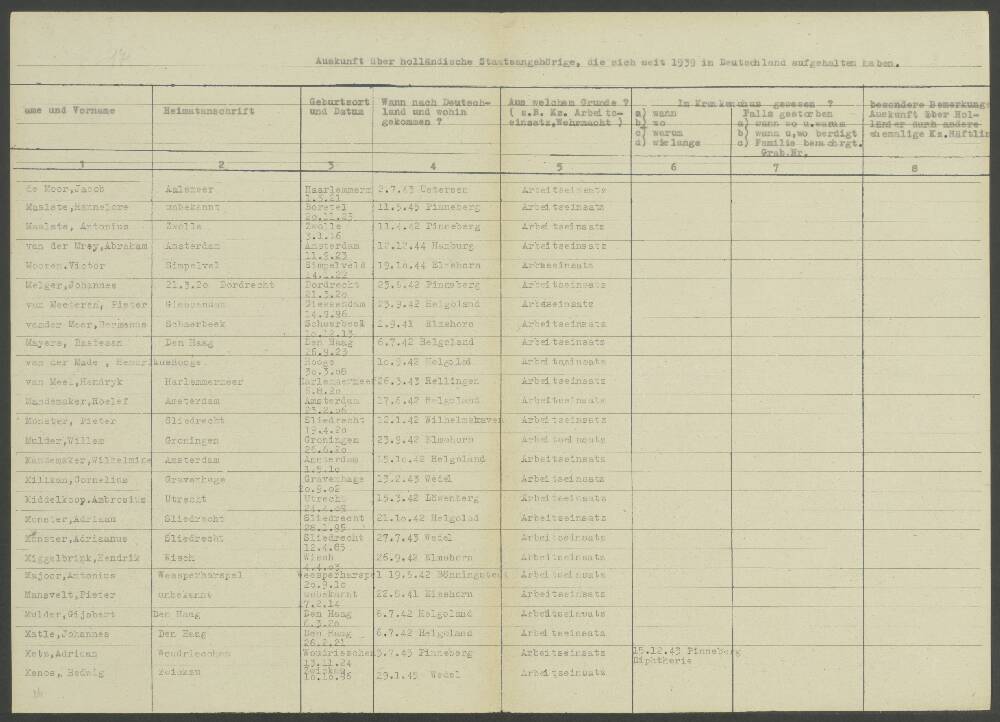 Auskunft über holländische Staatsangehörige, die sich seit 1939 in Deutschland aufgehalten haben.
ame und Vorname Heimatanschrift Geburtsort und Datum Wann nach Deutsch- land und wohin gekommen ? Aus welchem Grunde ? ( z.B. Kz. Arbeits- einsatz,Wehrmacht ) In Krankenhaus gewesen ? a) wann b) wo c) warum d) wielange Falls gestorben a) wann wo u.warum b) wann u,wo berdigt c) Familie benachrgt. Grab.Nr. besondere Bemerkunge Auskunft über Hol- länder auch andere ehemalige Kz.Häftlin
1 2 3 4 5 6 7 8
de Moor,Jacob Aalsmeer Haarlemmerm 2.7.43 Uetersen Arbeitseinsatz
1.3.21
Maalste,Hannelore unbekannt 11.5.45 Pinneberg Arbeitseinsatz
20.11.23
Maalste, Antonius Zwolle Zwolle 11.4.42 Pinneberg Arbeitseinsatz
3.1.16
van der Mrey,Abraham Amsterdam Amsterdam 12.12.44 Hamburg Arbeitseinsatz
11.5.23
Wooren.Victor Simpelvel Simpelveld 19.10.44 Elmshorn Arbeitseinsatz
14.1.22
Melger,Johannes 21.3.20 Dordrecht Dordrecht 23.6.42 Pinneberg Arbeitseinsatz
21.3.20
van Meeteren, Pieter Giessendam 23.9.42 Helgoland Arbeitseinsatz
14.9.96
vander Meer,Hermanus Schaerbeek Schaerbeek 2.9.41 Elmshorn Arbeitseinsatz
10.12.13
Mayers, Den Haag Den Haag 6.7.42 Helgoland Arbeitseinsatz
26.9.23
van der Made , Hooge 10.9.42 Helgolad Arbeitseinsatz
30.3.08
van Meel,Hendryk Harlemmermeer Harlemmermeer 26.3.43 Hellingen Arbeitseinsatz
6.8.20
Mandemaker,Roelef Amsterdam Amsterdam 17.6.42 Helgoland Arbeitseinsatz
23.2.06
Monster, Pieter Sliedrecht Sliedrecht 12.1.42 Wilhelmshaven Arbeitseinsatz
19.4.20
Mulder,Willem Groningen Groningen 23.9.42 Elmshorn Arbeitseinsatz
26.6.20
Mandemaker,Wilhelmine Amsterdam Amsterdam 15.10.42 Helgoland Arbeitseinsatz
1.5.10
Millkan,Cornelius Gravenhage Gravenhage 13.2.43 Wedel Arbeitseinsatz
20.9.02
Middelkoop.Ambrosius Utrecht Utrecht 15.3.42 Löwenberg Arbeitseinsatz
24.4.09
Monster,Adriaan Sliedrecht Sliedrecht 21.10.42 Helgolad Arbeitseinsatz
28.1.95
Monster,Adrianus Sliedrecht Sliedrecht 27.7.43 Wedel Arbeitseinsatz
12.4.85
Miggelbrink,Hendrik Wisch Wisch 26.9.42 Elmshorn Arbeitseinsatz
4.4.03
Majoor,Antonius Weesperharspel Weesperharspel 19.5.42 Arbeitseinsatz
20.9.10
Mansvelt,Pieter unbekannt unbekannt 22.8.41 Elmshorn Arbeitseinsatz
7.2.14
Mulder,Gijsbert Den Haag Den Haag 6.7.42 Helgoland Arbeitseinsatz
6.3.20
Matle,Johannes Den Haag Den Haag 6.7.42 Helgoland Arbeitseinsatz
26.2.21
Adrian Woudrieschen 3.7.43 Pinneberg Arbeitseinsatz 15.12.43 Pinneberg
13.11.24 Diphtherie
Hedwig 29.1.45 Wedel Arbeitseinsatz
10.10.96